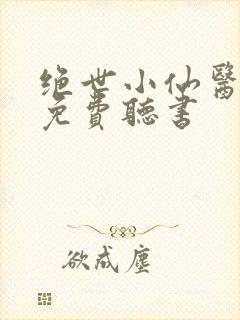 绝世小仙醫
免費聽書
欲成塵